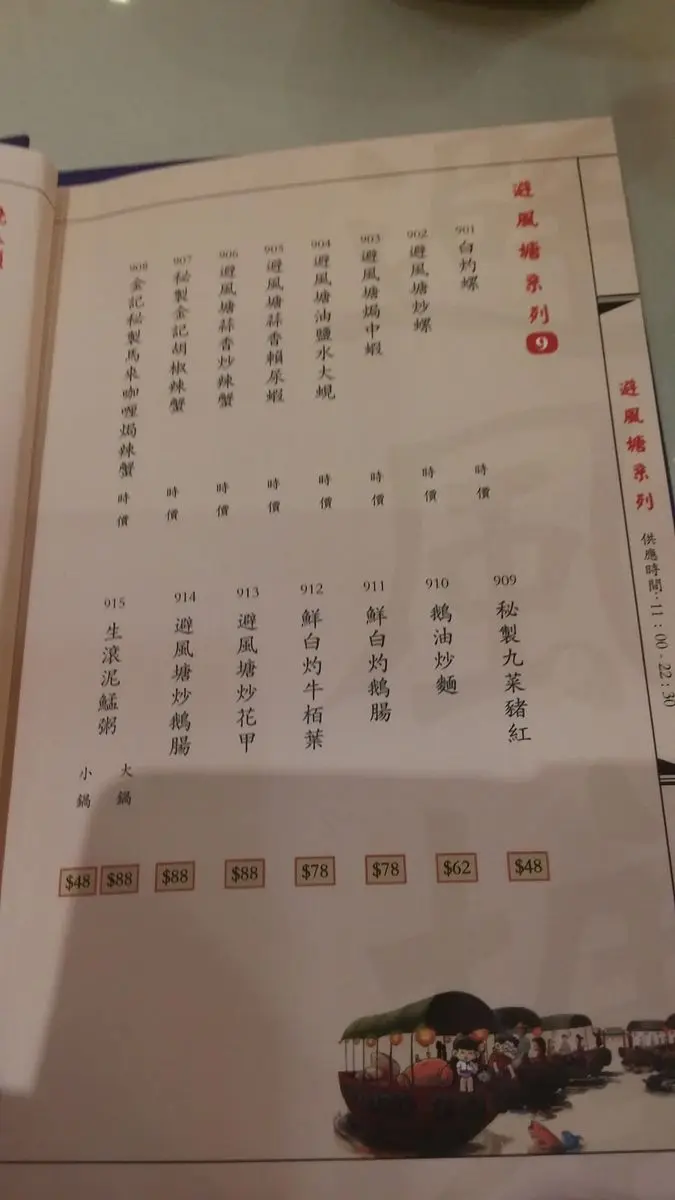 避風塘系列 9
901 白灼螺 時價
902 避風塘炒螺 時價
903 避風塘焗中蝦 時價
904 避風塘油鹽水大蜆 時價
905 避風塘蒜香賴尿蝦 時價
906 避風塘蒜香炒辣蟹 時價
907 秘製金記胡椒辣蟹 時價
908 金記秘製馬來咖喱焗辣蟹 時價
909 秘製九菜豬紅 $48
910 鵝油炒麵 $62
911 鮮白灼鵝腸 $78
912 鮮白灼牛栢葉 $78
913 避風塘炒花甲 $88
914 避風塘炒鵝腸 $88
915 生滾泥鯭粥 大鍋 $88
小鍋 $48
避風塘系列
供應時間:11:00-22:30